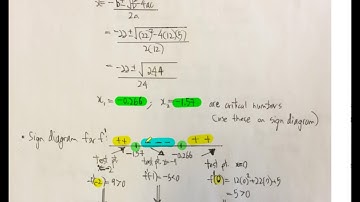 x = -b ± √b² - 4ac
2a
= -22 ± √(22)² - 4(12)(5)
2(12)
= -22 ± √244
24
x₁ = -0.266 ; x₂ = -1.57 are critical numbers
(use these on sign diagram)
• Sign diagram for f'
++ --- ++
-1.57 -0.266
test pt. x=-2 test pt. x=-1 test pt. x=0
f'(-2) = 9>0 f'(-1) = -5<0 f'(0) = 12(0)²+22(0)+5
= 5>0